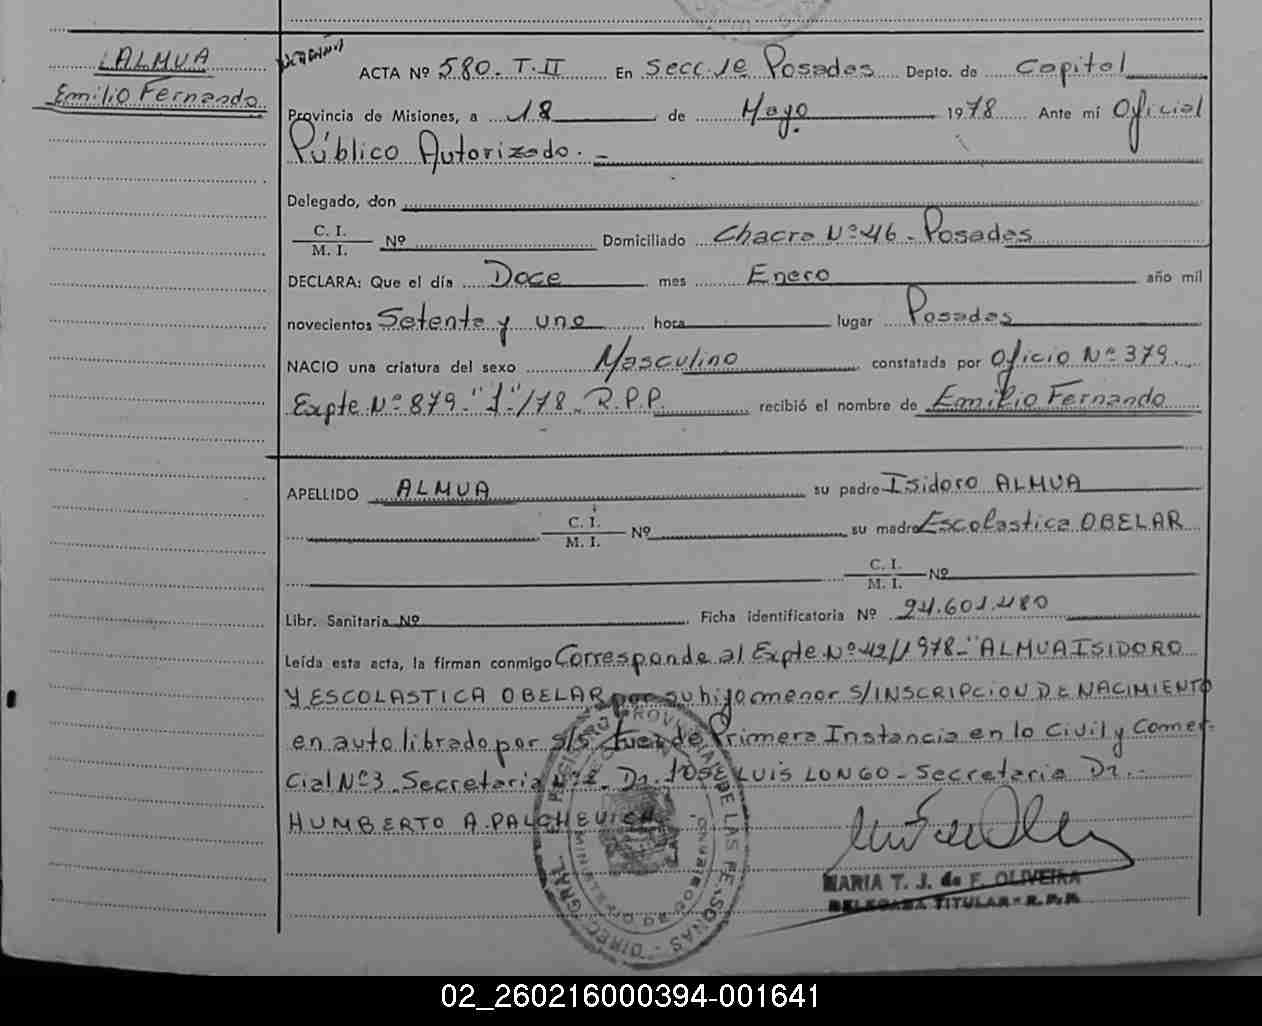 ALMUA
Emilio Fernando
ACTA Nº 580. T. II En Secc. 1e Posadas Depto. de Capital
Provincia de Misiones, a 18 de Mayo 1978 Ante mí Oficial
Público Autorizado. -
Delegado, don
C. I.
M. I. Nº Domiciliado Chacra Nº 46 - Posadas
DECLARA: Que el día Doce mes Enero año mil
novecientos Setenta y uno hora lugar Posadas
NACIO una criatura del sexo Masculino constatada por Oficio Nº 379.
Expte Nº 879 "1"/78. R.P.P. recibió el nombre de Emilio Fernando
APELLIDO ALMUA su padre Isidoro ALMUA
C. I.
M. I. Nº su madre Escolastica OBELAR
C. I.
M. I. Nº
Libr. Sanitaria Nº Ficha identificatoria Nº 24.601.480
Leída esta acta, la firman conmigo Corresponde al Expte Nº 42/1978-"ALMUA ISIDORO
Y ESCOLASTICA OBELAR por su hijo menor S/INSCRIPCION DE NACIMIENTO
en auto librado por S/S. Juez de Primera Instancia en lo Civil y Comer-
cial Nº 3. Secretaria Nº Dr. JOSE LUIS LONGO - Secretaria Dr.-
HUMBERTO A. PALCHEVICH
DIREC. GRAL. REGISTRO PROVINCIAL DE LAS PERSONAS
MARIA T. J. de F. OLIVEIRA
DELEGADA TITULAR - R. P. P.
02_260216000394-001641